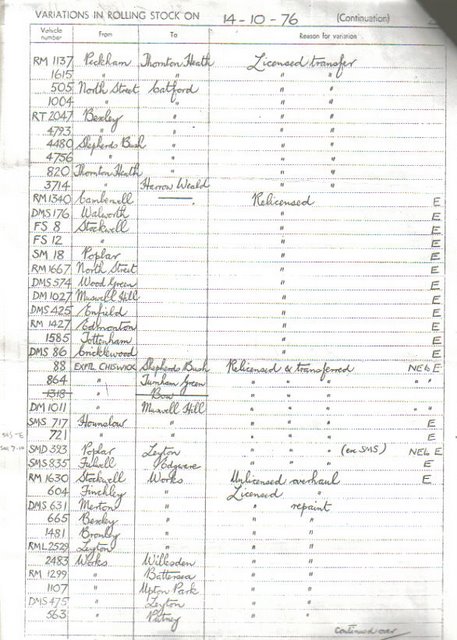 VARIATIONS IN ROLLING STOCK ON 14-10-76 (Continuation)
Vehicle number From To Reason for variation
RM 1137 Peckham Thornton Heath Licensed transfer
1615 " " " "
505 North Street Catford " "
1004 " " " "
RT 2047 Bexley " " "
4793 " " " "
4480 Shepherds Bush " " "
4756 " " " "
820 Thornton Heath " " "
3714 " Harrow Weald " "
RM 1340 Camberwell — Relicensed E
DMS 176 Walworth " E
FS 8 Stockwell " E
FS 12 " " E
SM 18 Poplar " E
RM 1667 North Street " E
DMS 574 Wood Green " E
DM 1027 Muswell Hill " E
DMS 425 Enfield " E
RM 1427 Edmonton " E
1585 Tottenham " E
DMS 86 Cricklewood " E
88 EXPTL CHISWICK Shepherds Bush Relicensed & transferred NEb E
864 " Turnham Green " " " " "
1318 " Bow " " "
DM 1011 " Muswell Hill " " " " "
SMS 717 Hounslow " " " " E
721 " " " " " E
SMD 393 Poplar Leyton " " " (exc SMS) NEb E
SMS 835 Fulwell Edgware " " " E
RM 1630 Stockwell Works Unlicensed overhaul E
604 Finchley " Licensed "
DMS 631 Merton " " repaint
665 Bexley " " "
1481 Bromley " " "
RML 2529 Leyton " " "
2483 Works Willesden " "
RM 1299 " Battersea " "
1107 " Upton Park " "
DMS 475 " Leyton " "
563 " Putney " "
Continued over